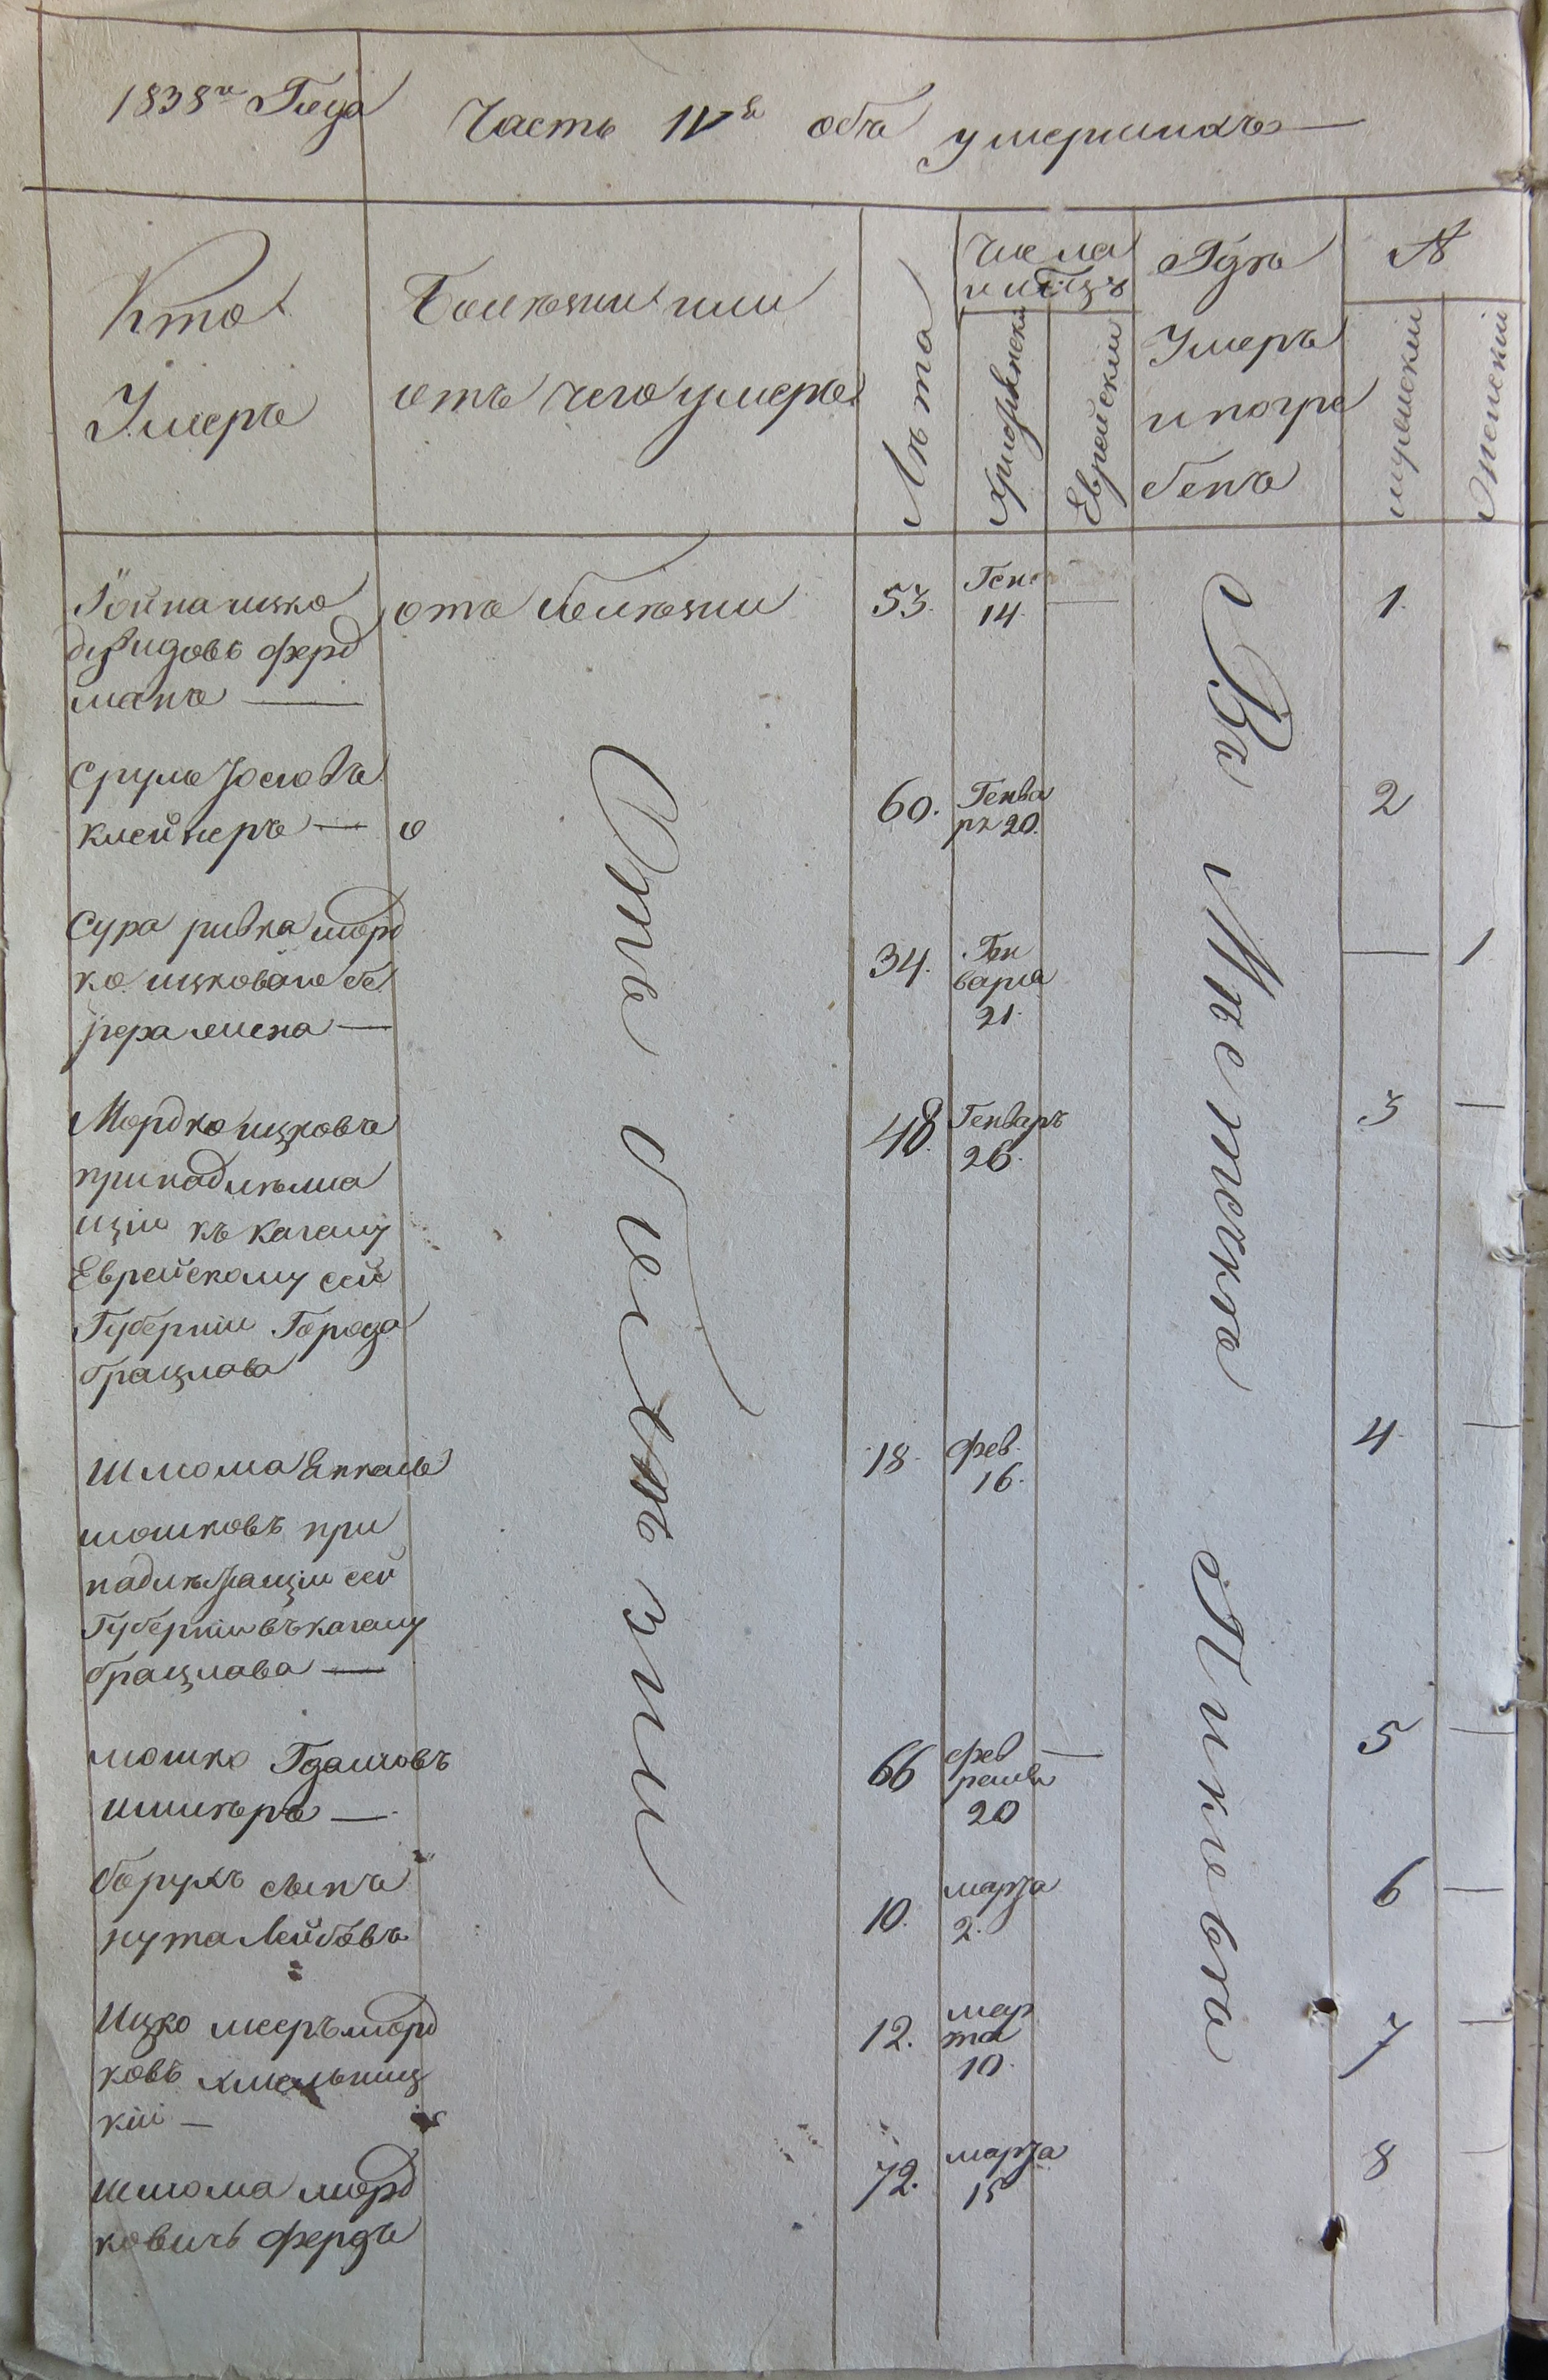 1838го Года
Часть IVя объ умершихъ
Кто
Умеръ
Болѣзни или
отъ чего умеръ
Лѣта
Числа
и мѣсцъ
Христіянски
Еврейскіи
Гдѣ
Умеръ
и погре
бенъ
№
мужескіи
Женскіи
Ицко
Давидовъ ферд
манъ
отъ болѣзни
53.
Ген
14
1.
Сруль Иословъ
клейнеръ
о
60.
Генва
ря 20.
2
Сура ривка морд
ка ицковаго бе
рера жена
34.
Ген
варя
21.
1
Мордко ицковъ
принадлежа
щіи къ кагалу
Еврейскому сей
Губерніи Города
брацлава
48.
Генваръ
26.
3
Шлома Янкель
мошковъ при
надлежащіи сей
Губерніи въ кагалу
брацлава
18.
фев.
16.
4.
мошко
66
фев
раля
20
5
борухъ сынъ
нута Лейбовъ
10.
марта
2.
6
Ицко мееръ морд
ковъ хмельниц
кіи
12.
мар
та
10.
7
шлома морд
ковичъ фердъ
72.
марта
15
8
Отъ болѣзни
Въ Мѣстѣчкѣ Пиковѣ